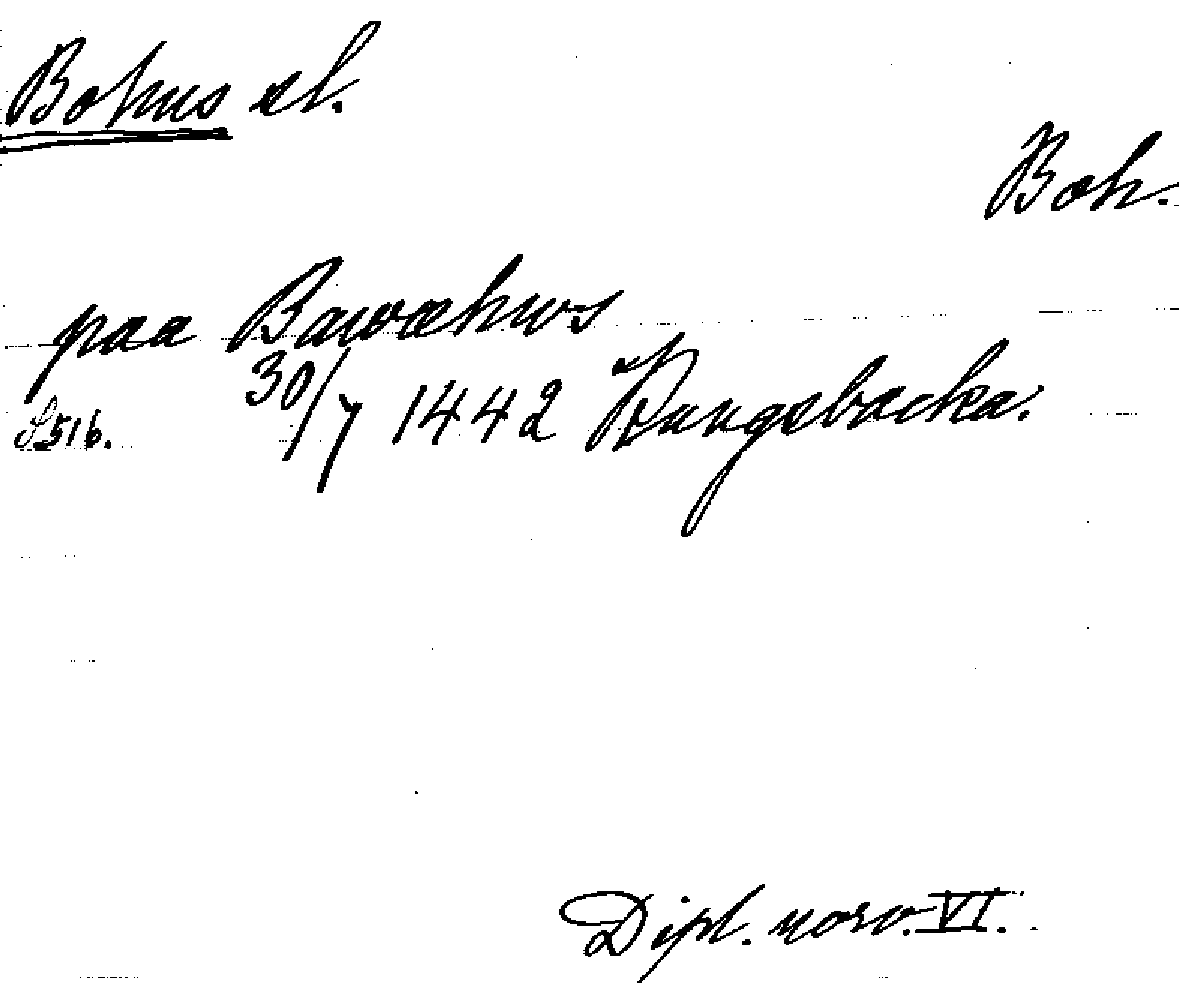 Bohus sl.
Boh.
paa Bawæhws
S. 516. 30/7 1442 Kungsbacka.
Dipl. norv. VI.